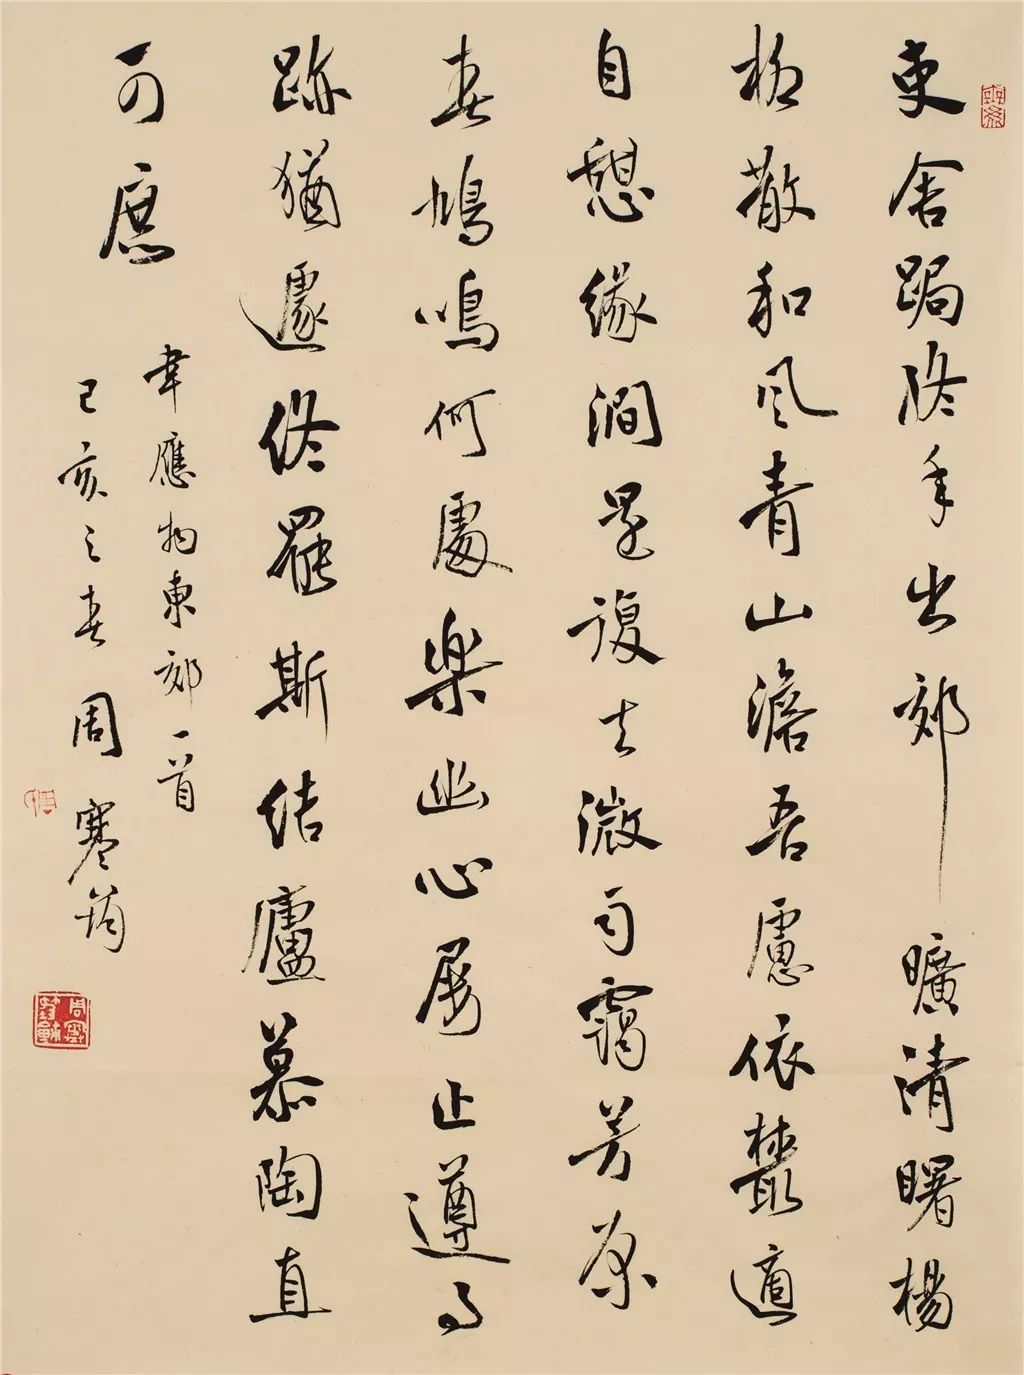 吏舍跼終年出郊曠清曙楊
柳散和風青山澹吾慮依叢適
自憩緣澗還復去微雨靄芳原
春鳩鳴何處樂幽心屢止遵事
跡猶遽終罷斯結廬慕陶直
可庶
韋應物東郊一首
己亥之春周寒筠